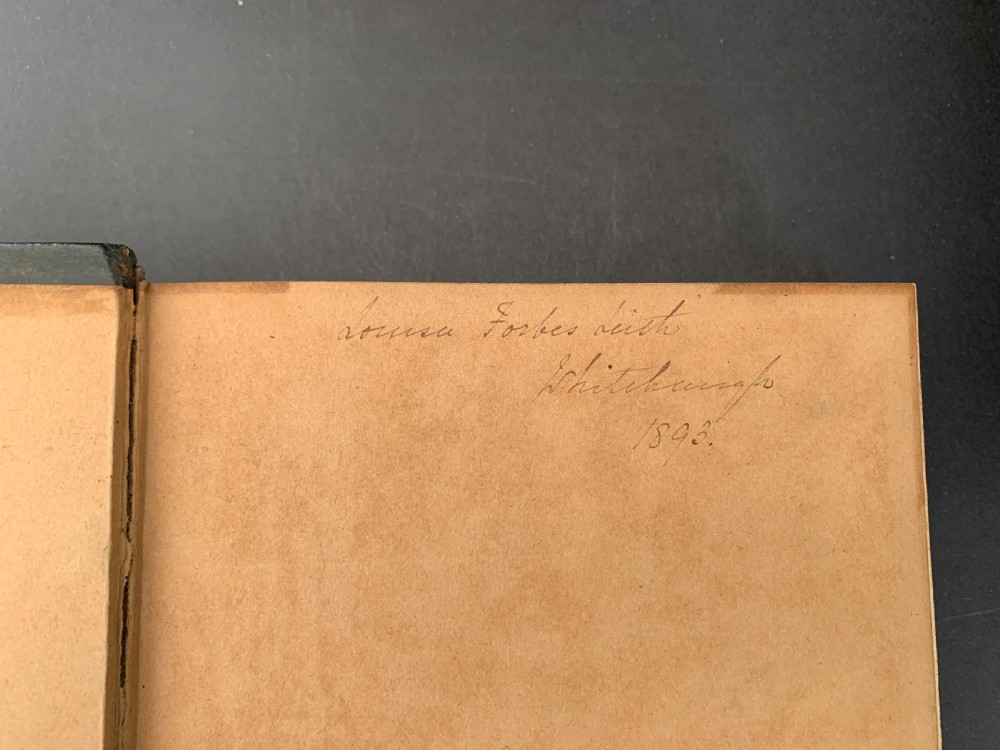 Louisa Forbes Leith
Whitehaugh
1893.